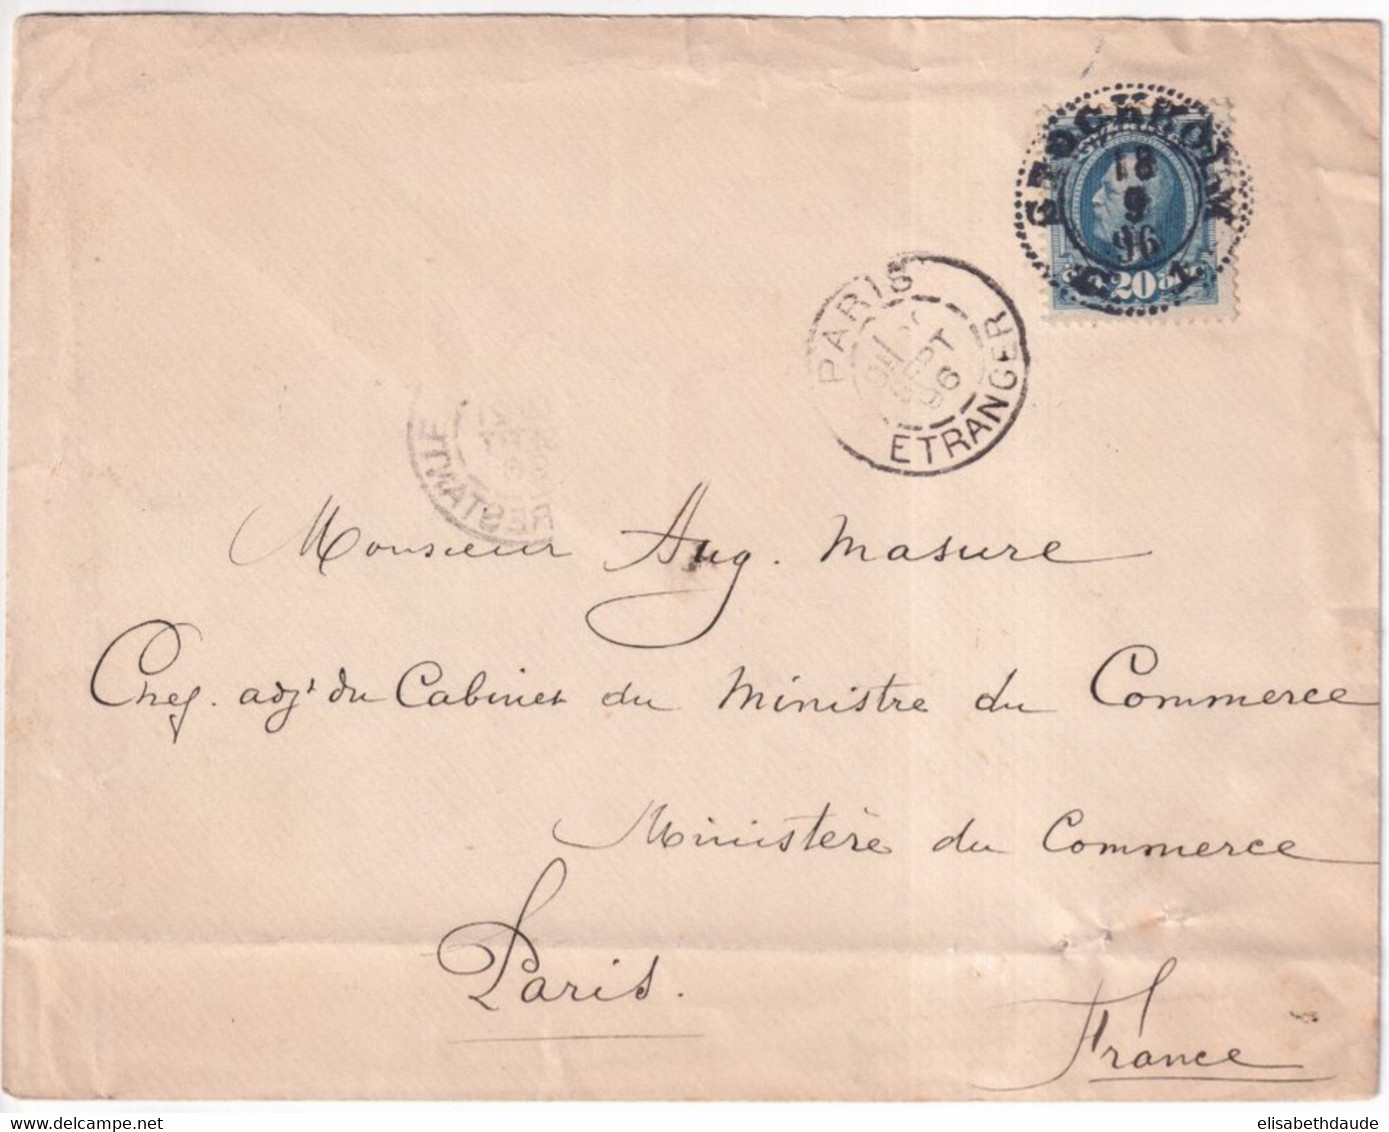 STOCKHOLM
18
9
96
SVERIGE
20
PARIS
SEPT
96
ETRANGER
Monsieur Aug. Masure
Chef. adjt du Cabinet du Ministre du Commerce
Ministère du Commerce
Paris.
France
delcampe.net
elisabethdaude